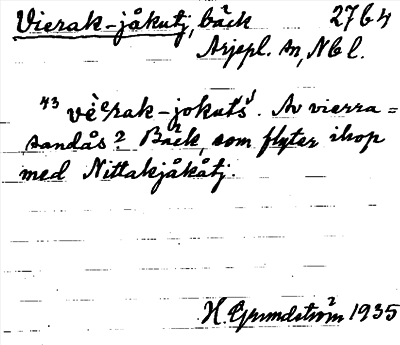 Vierak-jåkutj, bäck 27 b 4
Arjepl. sn, Nbl.
43 vèᵉrak-jokuts'. Av vierra =
sandås? Bäck, som flyter ihop
med Nittakjåkåtj.
H. Grundström 1935